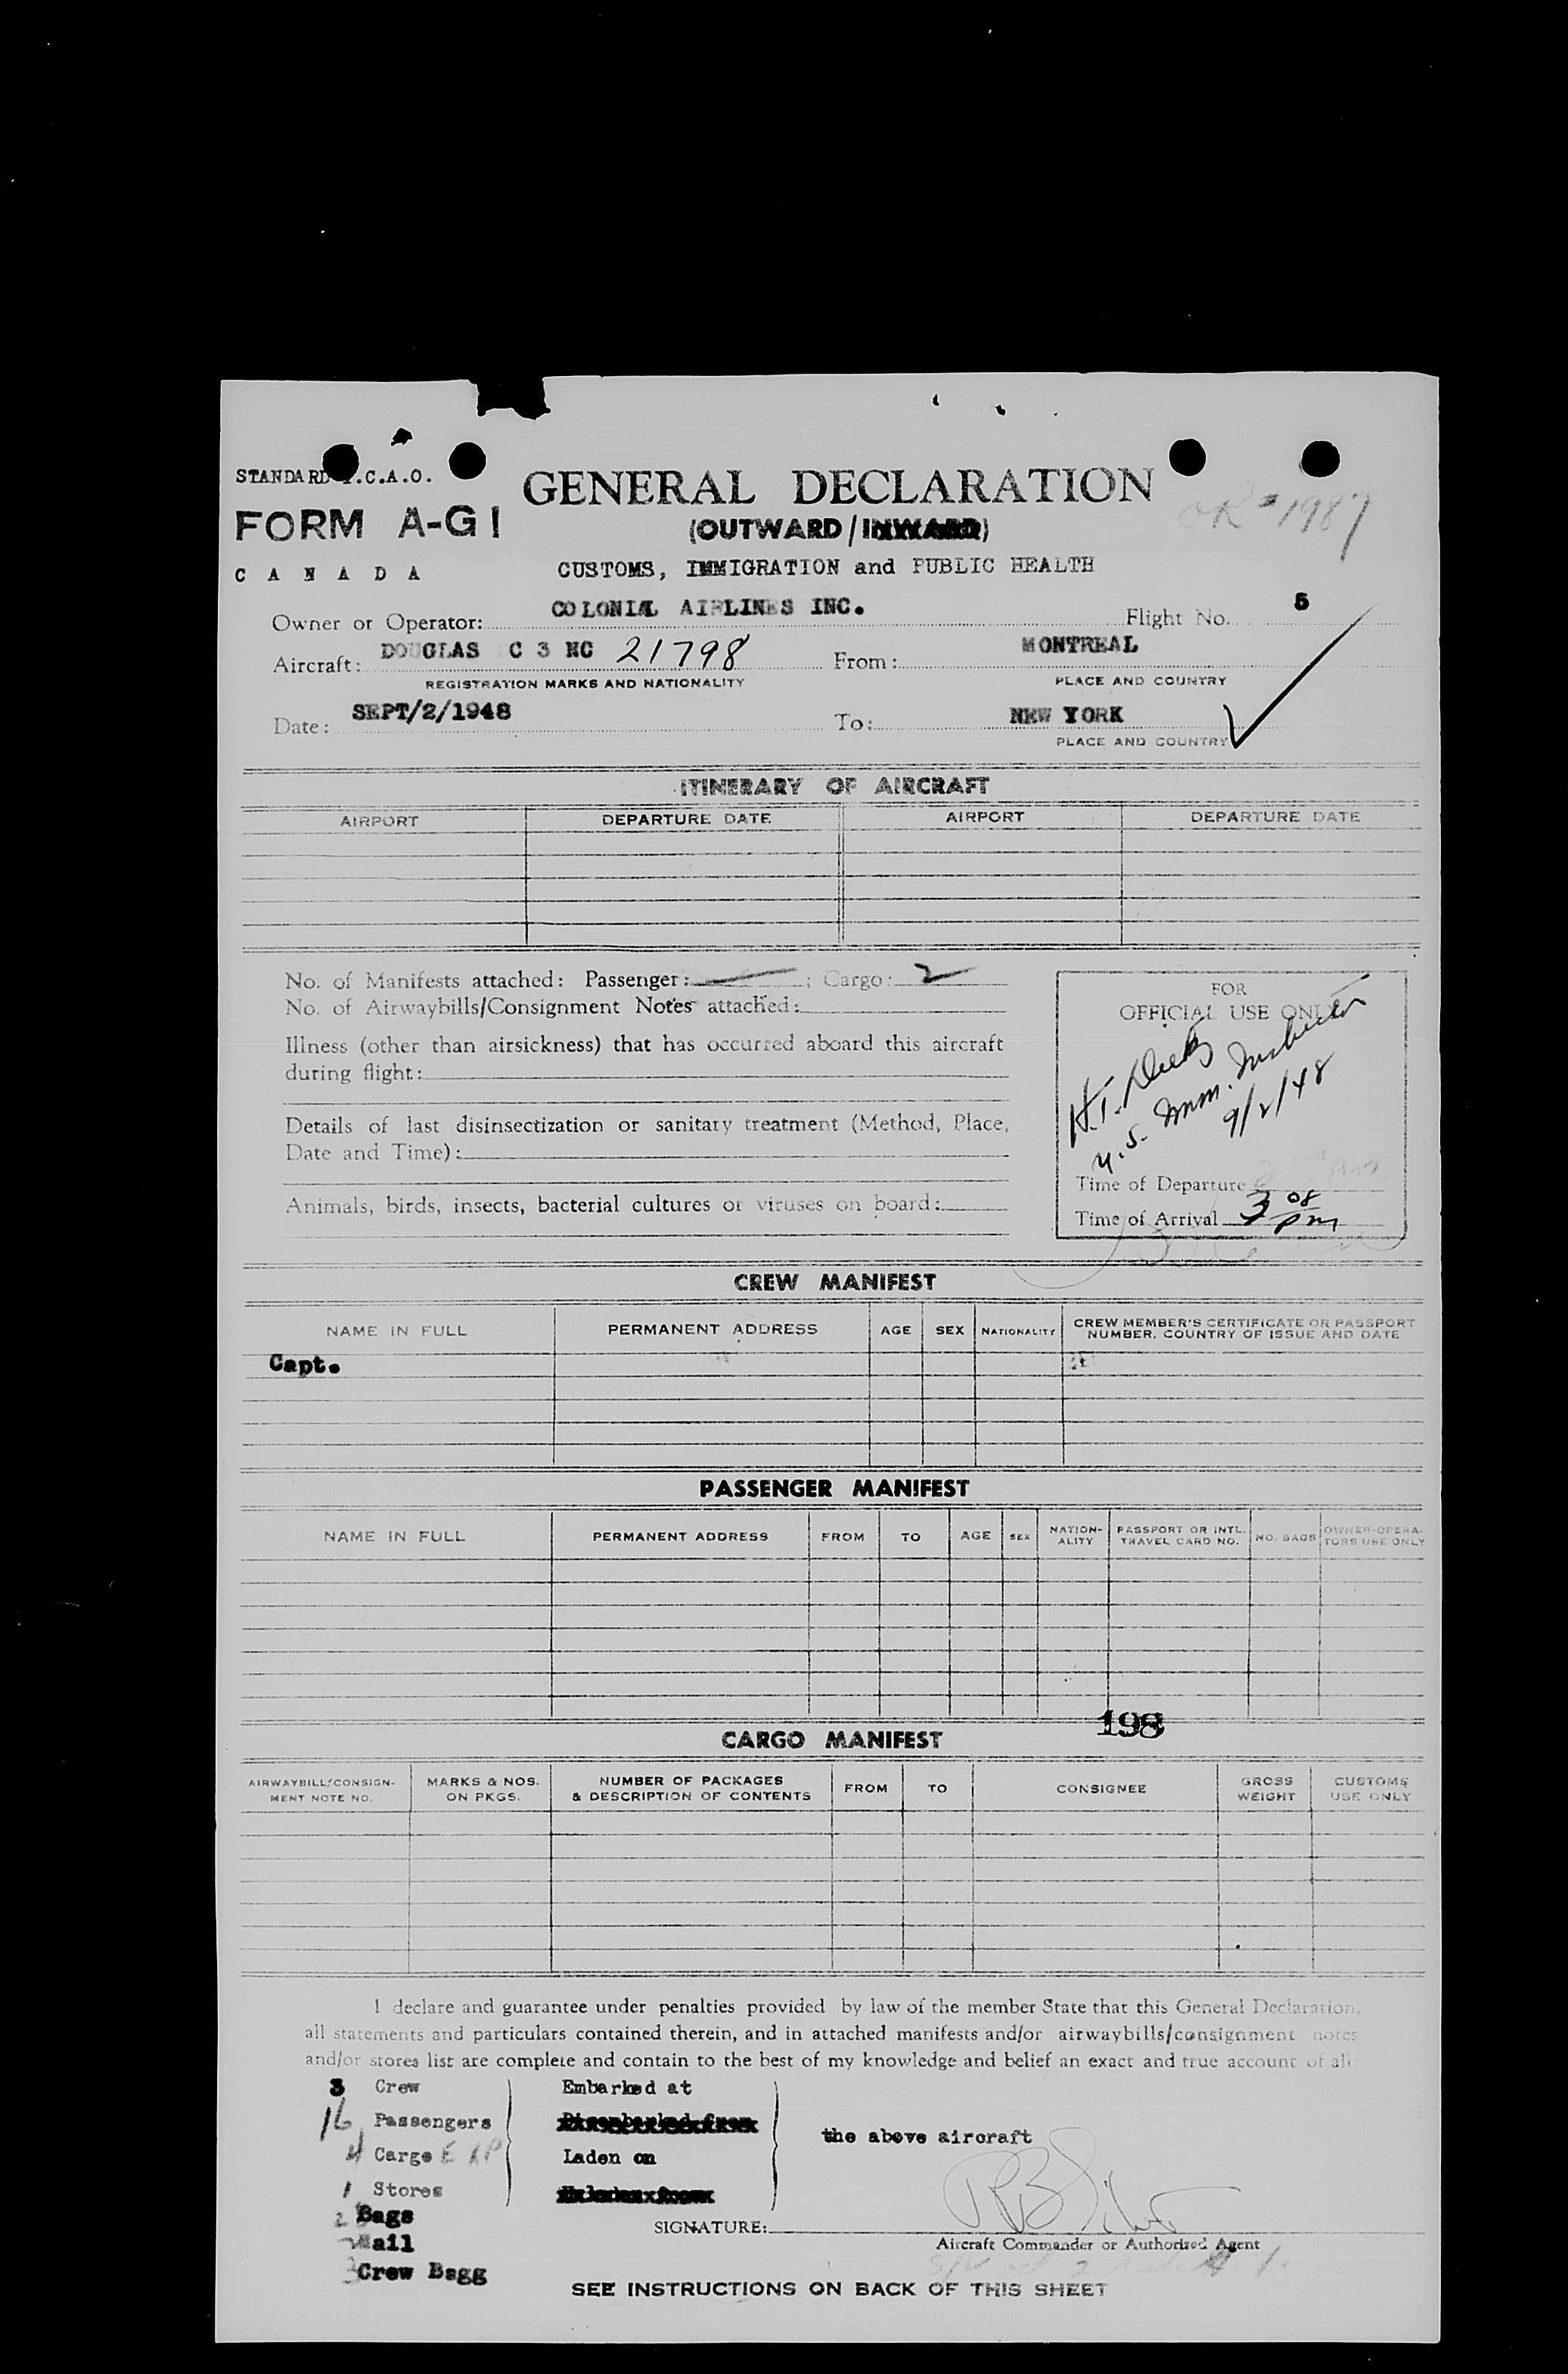 STANDARD .C.A.O.
GENERAL DECLARATION
FORM A-G1
(OUTWARD/INWARD)
OR #1987
CANADA
CUSTOMS, IMMIGRATION and PUBLIC HEALTH
Owner or Operator: COLONIAL AIRLINES INC. Flight No. 5
Aircraft: DOUGLAS C 3 NC 21798 From: MONTREAL
REGISTRATION MARKS AND NATIONALITY PLACE AND COUNTRY
Date: SEPT/2/1948 To: NEW YORK
PLACE AND COUNTRY
ITINERARY OF AIRCRAFT
AIRPORT DEPARTURE DATE AIRPORT DEPARTURE DATE
No. of Manifests attached: Passenger: ; Cargo: 2
No. of Airwaybills/Consignment Notes attached:
Illness (other than airsickness) that has occurred aboard this aircraft
during flight:
Details of last disinsectization or sanitary treatment (Method, Place,
Date and Time):
Animals, birds, insects, bacterial cultures or viruses on board:
FOR
OFFICIAL USE ONLY
H.T.
U.S. Imm. Inspector
9/2/48
Time of Departure
Time of Arrival 3 08 PM
CREW MANIFEST
NAME IN FULL PERMANENT ADDRESS AGE SEX NATIONALITY CREW MEMBER'S CERTIFICATE OR PASSPORT
NUMBER, COUNTRY OF ISSUE AND DATE
Capt.
PASSENGER MANIFEST
NAME IN FULL PERMANENT ADDRESS FROM TO AGE SEX NATION-
ALITY PASSPORT OR INTL.
TRAVEL CARD NO. NO. BAGS OWNER-OPERA-
TORS USE ONLY
198
CARGO MANIFEST
AIRWAYBILL/CONSIGN-
MENT NOTE NO. MARKS & NOS.
ON PKGS. NUMBER OF PACKAGES
& DESCRIPTION OF CONTENTS FROM TO CONSIGNEE GROSS
WEIGHT CUSTOMS
USE ONLY
I declare and guarantee under penalties provided by law of the member State that this General Declaration,
all statements and particulars contained therein, and in attached manifests and/or airwaybills/consignment notes
and/or stores list are complete and contain to the best of my knowledge and belief an exact and true account of all:
3 Crew Embarked at
16 Passengers Disembarked from
the above aircraft
4 Cargo EXP Laden on
1 Stores
2 Bags
SIGNATURE:
Mail
Aircraft Commander or Authorized Agent
3 Crew Bagg
SEE INSTRUCTIONS ON BACK OF THIS SHEET